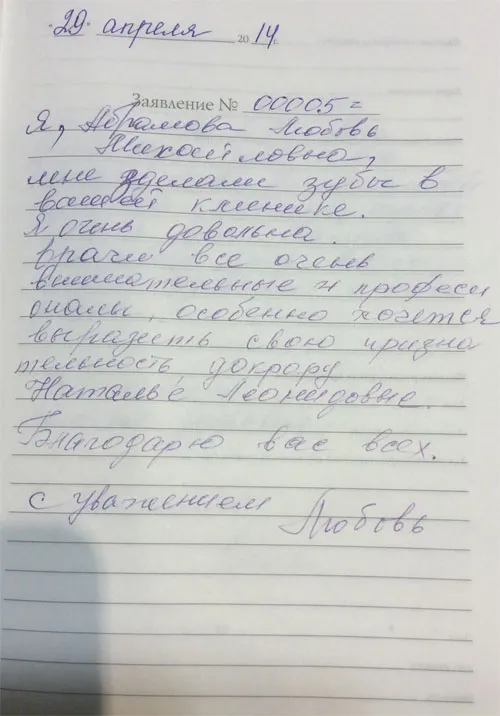 "29" апреля 2014 г.
Заявление № 00005=
Я, Абрамова Любовь
Михайловна,
мне зделали зубы в
вашей клинике.
Я очень довольна.
врачи все очень
внимательные и професи
оналы, особенно хочется
выразить свою призна
тельность доктору
Наталье Леонидовне.
Благодарю вас всех.
с уважением Любовь